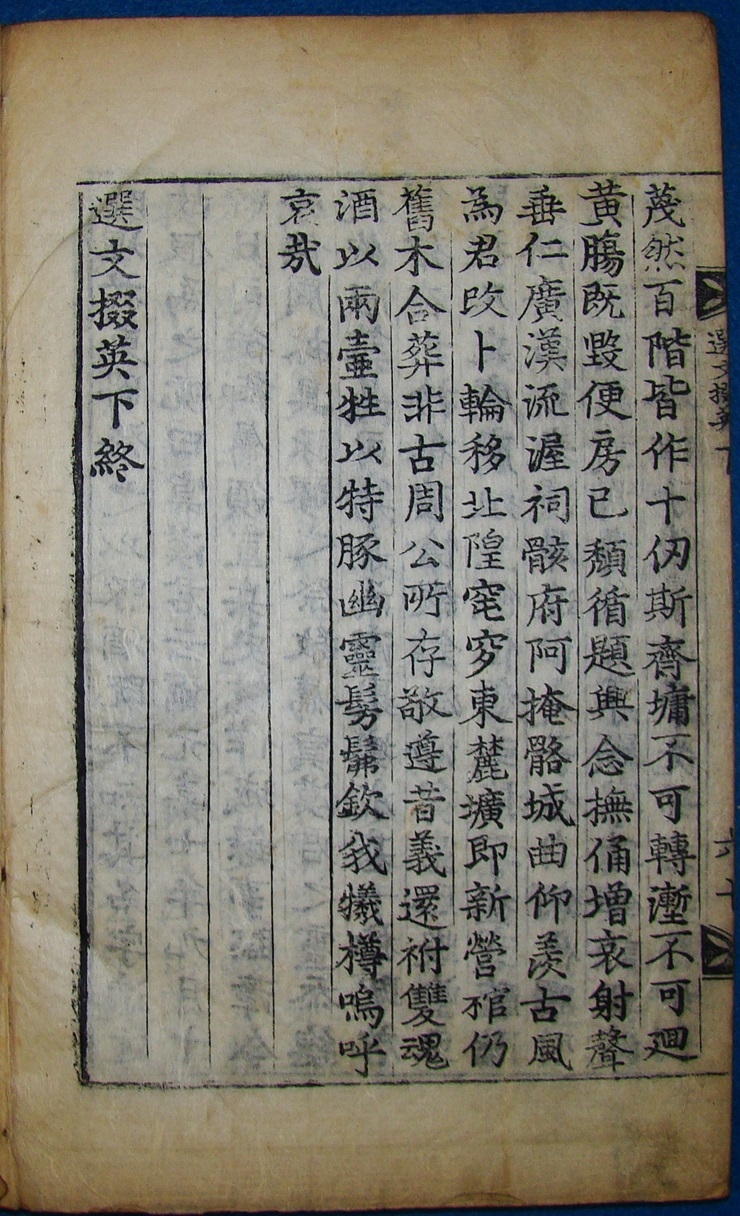 選文掇英 下
茂然百階皆作十仞斯齊墉不可轉壍不可迴
黃膓既毀便房已頹循題興念撫俑增哀射聲
垂仁廣漢流渥祠骸府阿掩骼城曲仰羨古風
為君改卜輪移北隍窀穸東麓壙即新營棺仍
舊木合葬非古周公所存敬遵昔義還祔雙魂
酒以兩壷牲以特豚幽靈髣髴歆我犧樽嗚呼
哀哉
選文掇英下終